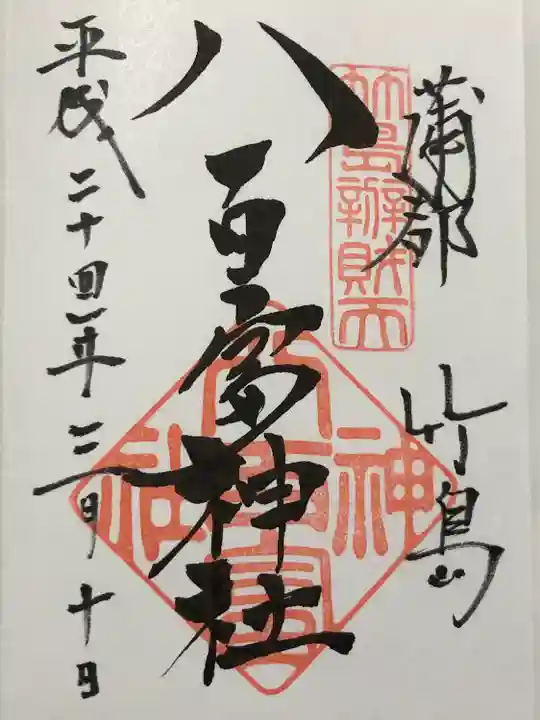 蒲郡 竹島
竹島辦財天
八百富神社
八百富神社
平成二十四年三月十日